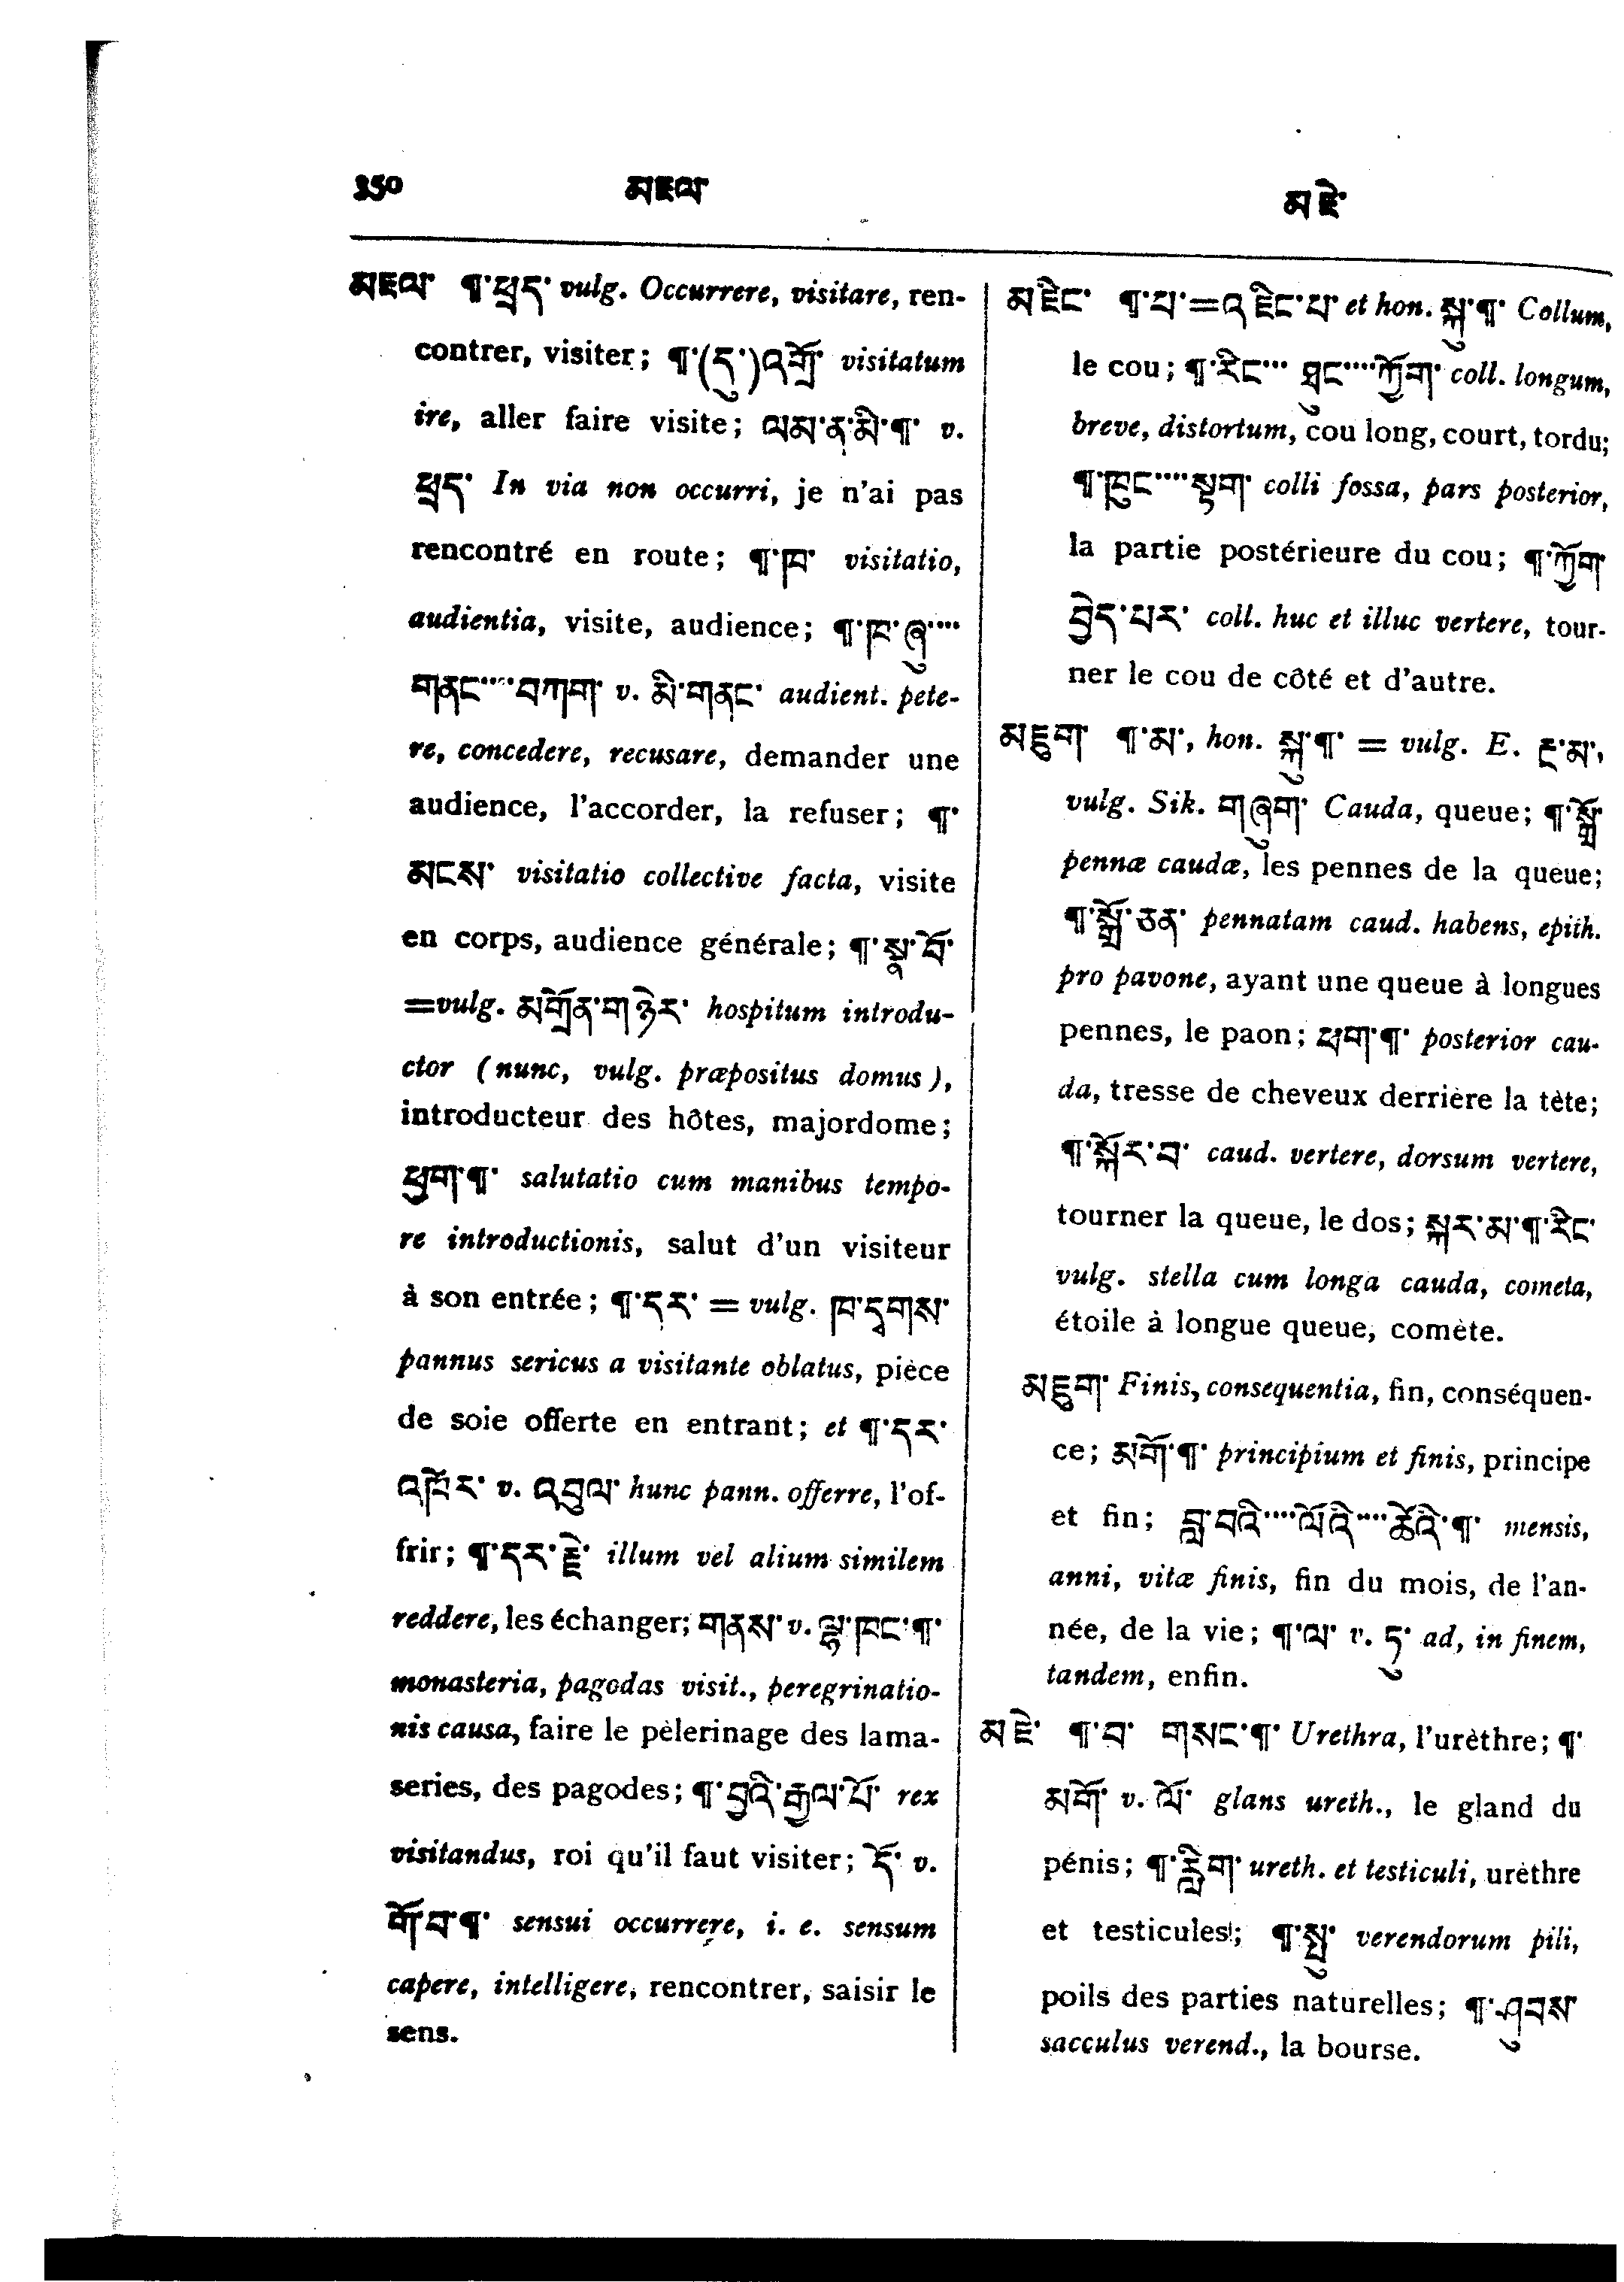 350 མཇལ་ མཇེ་
མཇལ་ ¶་ཕྲད་ vulg. Occurrere, visitare, ren-
contrer, visiter; ¶་(དུ་)འགྲོ་ visitatum
ire, aller faire visite; ལམ་ན་མི་¶་ v.
ཕྲད་ In via non occurri, je n'ai pas
rencontré en route; ¶་ཁ་ visitatio,
audientia, visite, audience; ¶་ཁ་ཞུ····
གནང····བཀག་ v. མི་གནང་ audient. pete-
re, concedere, recusare, demander une
audience, l'accorder, la refuser; ¶་
མངས་ visitatio collective facta, visite
en corps, audience générale; ¶་སྣ་བོ་
=vulg. མགྲོན་གཉེར་ hospitum introdu-
ctor (nunc, vulg. præpositus domus),
introducteur des hôtes, majordome;
ཕྱག་¶་ salutatio cum manibus tempo-
re introductionis, salut d'un visiteur
à son entrée; ¶་དར་ = vulg. ཁ་དྭགས་
pannus sericus a visitante oblatus, pièce
de soie offerte en entrant; et ¶་དར་
འཁོར་ v. འབུལ་ hunc pann. offerre, l'of-
frir; ¶་དར་རྗེ་ illum vel alium similem
reddere, les échanger; གནས་ v. ལྷ་ཁང་¶་
monasteria, pagodas visit., peregrinatio-
nis causa, faire le pèlerinage des lama-
series, des pagodes; ¶་བྱའི་རྒྱལ་པོ་ rex
visitandus, roi qu'il faut visiter; དོ་ v.
གོ་བ་¶་ sensui occurrere, i. e. sensum
capere, intelligere, rencontrer, saisir le
sens.
མཇིང་ ¶་པ་=འཇིང་པ་ et hon. སྐུ་¶་ Collum,
le cou; ¶་རིང··· ཐུང····ཀྱོག་ coll. longum,
breve, distortum, cou long, court, tordu;
¶་ཁུང····ལྟག་ colli fossa, pars posterior,
la partie postérieure du cou; ¶་ཀྱོག་
བྱེད་པར་ coll. huc et illuc vertere, tour-
ner le cou de côté et d'autre.
མཇུག་ ¶་མ་, hon. སྐུ་¶་ = vulg. E. རྔ་མ་,
vulg. Sik. གཞུག་ Cauda, queue; ¶་སྒྲོ་
pennæ caudæ, les pennes de la queue;
¶་སྒྲོ་ཅན་ pennatam caud. habens, epith.
pro pavone, ayant une queue à longues
pennes, le paon; ཕག་¶་ posterior cau-
da, tresse de cheveux derrière la tête;
¶་སྐོར་བ་ caud. vertere, dorsum vertere,
tourner la queue, le dos; སྐར་མ་¶་རིང་
vulg. stella cum longa cauda, cometa,
étoile à longue queue, comète.
མཇུག་ Finis, consequentia, fin, conséquen-
ce; མགོ་¶་ principium et finis, principe
et fin; ཟླ་བའི····ལོའི····ཚེའི་¶་ mensis,
anni, vitæ finis, fin du mois, de l'an-
née, de la vie; ¶་ལ་ v. དུ་ ad, in finem,
tandem, enfin.
མཇེ་ ¶་བ་ གསང་¶་ Urethra, l'urèthre; ¶་
མགོ་ v. ལོ་ glans ureth., le gland du
pénis; ¶་རླིག་ ureth. et testiculi, urèthre
et testicules; ¶་སྤུ་ verendorum pili,
poils des parties naturelles; ¶་ཤུབས་
sacculus verend., la bourse.